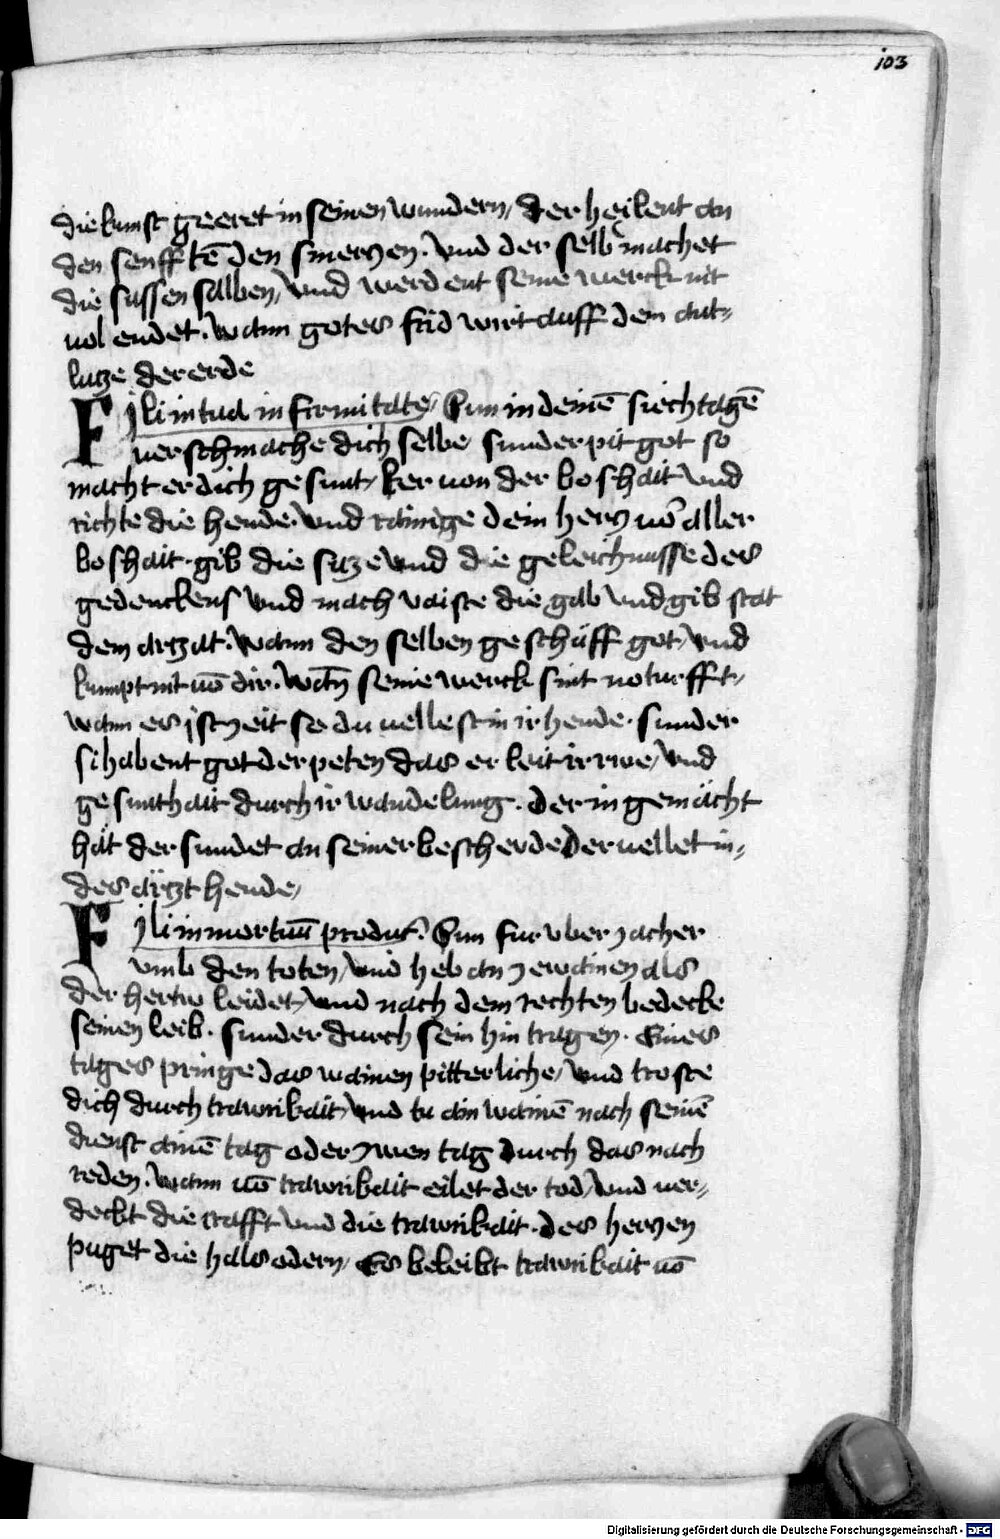 103
die kunst geeret in seinen wundern, der heilent an
den senfftē den smerczen. vnd der selb machet
die sussen salben, vnd werdent seine werck nit
uol endet. wann gotes frid wirt auff dem ant-
lucze der erde
Fili in tua in firmitate, Sun in deinē siechtagē
uerschmache dich selbe sunder pit got so
macht er dich gesunt, ker uon der boshait vnd
richte die hende, vnd rainige dein hercz uō aller
boshait. gib die sucze vnd die geleichnusse des
gedenckens vnd mach vaiste die gab vnd gib stat
dem arczat. wann den selben geschuff got, vnd
kumpt nit uō dir. wañ seine werck sint noturfft,
wann es ist zeit so du uellest in ir hende. sunder
si habent got der peten das er leit ir rwe, vnd
gesunthait durch ir wandelung. der in gemächt
hat der sundet an seiner bescherde der uellet in-
des arczt hende,
Fili in mortuū produc. Sun fur vber zacher
vmb den toten, vnd heb an ze wainen als
der hertw leidet, vnd nach dem rechten bedecke
seinen leib. sunder durch sein hin tragen. Eines
tages pringe das wainen pitterliche, vnd troste
dich durch trawrikait, vnd tu ain wainē nach seinē
dienst ainē tag oder zwen tag durch das nach
reden. wann uō trawrikait eilet der tod, vnd uer-
deckt die crafft vnd die trawrikait. des herczen
puget die hals odern, Es beleibt trawrikait uō
Digitalisierung gefördert durch die Deutsche Forschungsgemeinschaft - DFG